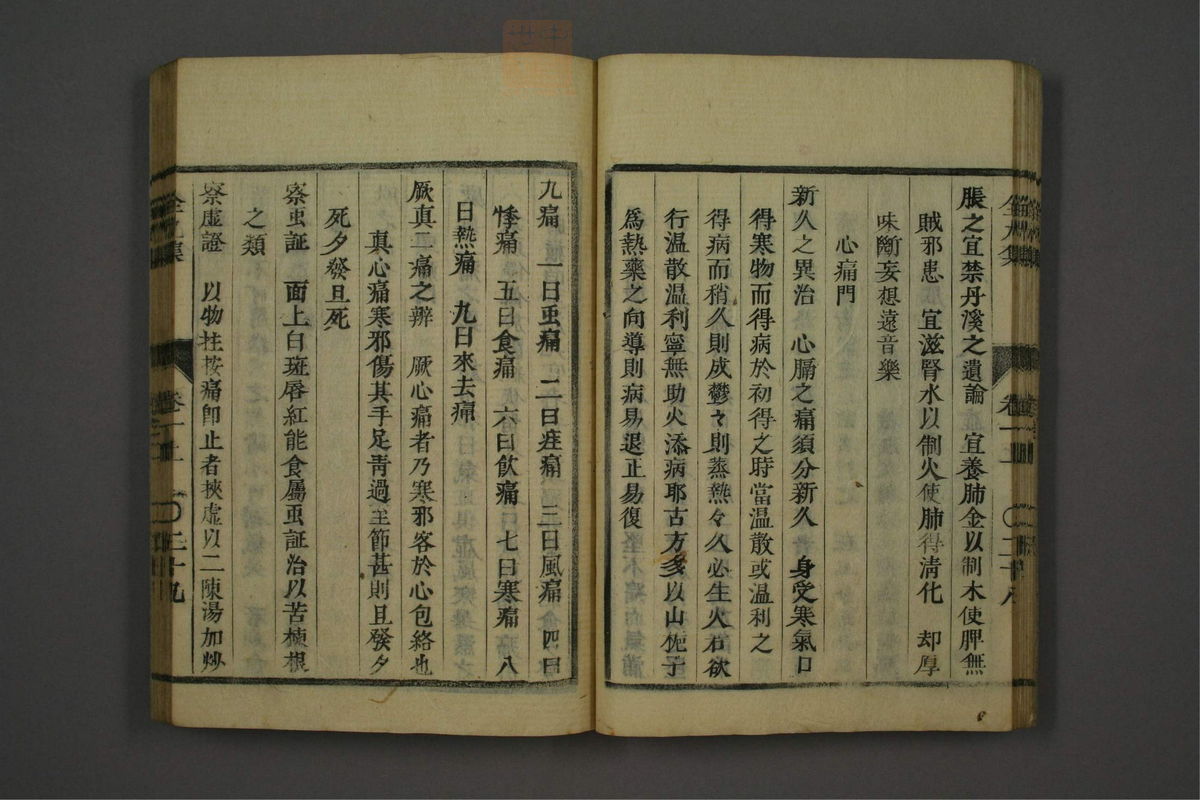 脹之宜禁丹溪之遺論　宜養肺金以制木使脾無
賊邪患　宜滋腎水以制火使肺得淸化　却厚
味斷妄想遠音樂
心痛門
新久之異治　心膈之痛須分新久　身受寒氣口
得寒物而得病於初得之時當温散或温利之
得病而稍久則成鬱々則蒸熱々久必生火若欲
行温散温利寧無助火添病耶古方多以山梔子
爲熱藥之向導則病易退正易復
九痛　一曰虫痛　二曰疰痛　三曰風痛　四曰
悸痛　五曰食痛　六曰飲痛　七曰寒痛　八
曰熱痛　九曰來去痛
厥真二痛之辨　厥心痛者乃寒邪客於心包絡也
真心痛寒邪傷其手足靑過主節甚則旦發夕
死夕發旦死
察虫証　面上白斑唇紅能食屬虫証治以苦楝根
之類
察虛證　以物拄按痛卽止者挾虛以二陳湯加炒